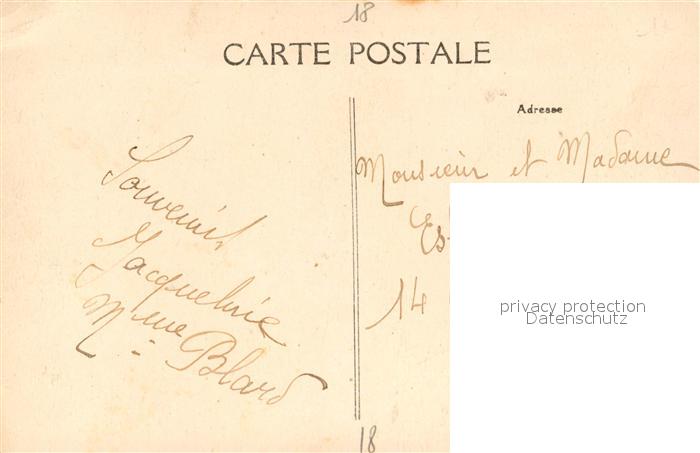 18
CARTE POSTALE
Adresse
Monsieur et Madame
Es
14
Souvenir
Jacqueline
Mme Blard
privacy protection
Datenschutz
18